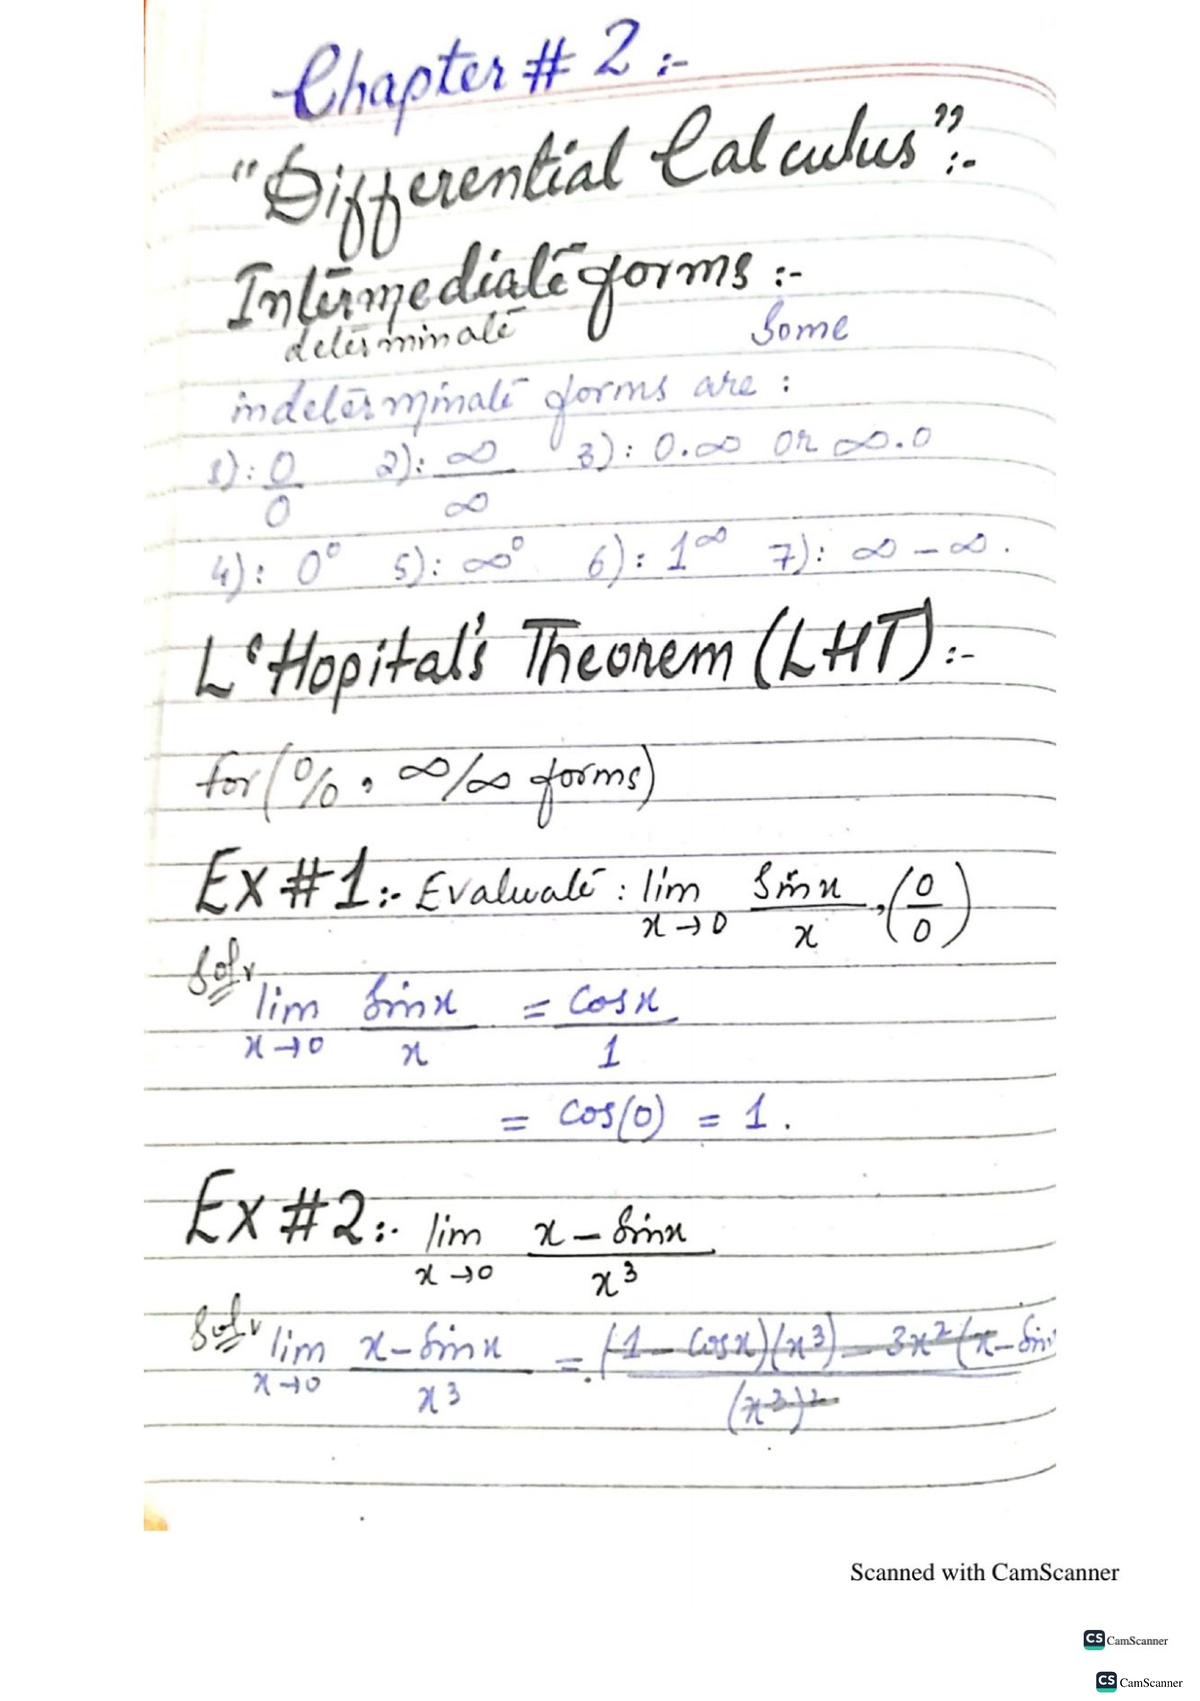 Chapter # 2 :-
"Differential Calculus":-
Intermediate forms :-
determinate Some
indeterminate forms are :
1): 0/0 2): ∞/∞ 3): 0.∞ or ∞.0
4): 0⁰ 5): ∞⁰ 6): 1^∞ 7): ∞ - ∞ .
L'Hopital's Theorem (LHT) :-
for (0/0 , ∞/∞ forms)
Ex # 1:- Evaluate : lim x→0 Sinx/x , (0/0)
Sol:
lim x→0 Sinx/x = Cosx/1
= Cos(0) = 1 .
Ex # 2:- lim x→0 x - Sinx/x³
Sol: lim x→0 x - Sinx/x³ = (1 - Cosx)(x³) - 3x²(x - Sin/(x³)²
Scanned with CamScanner
CS CamScanner
CS CamScanner